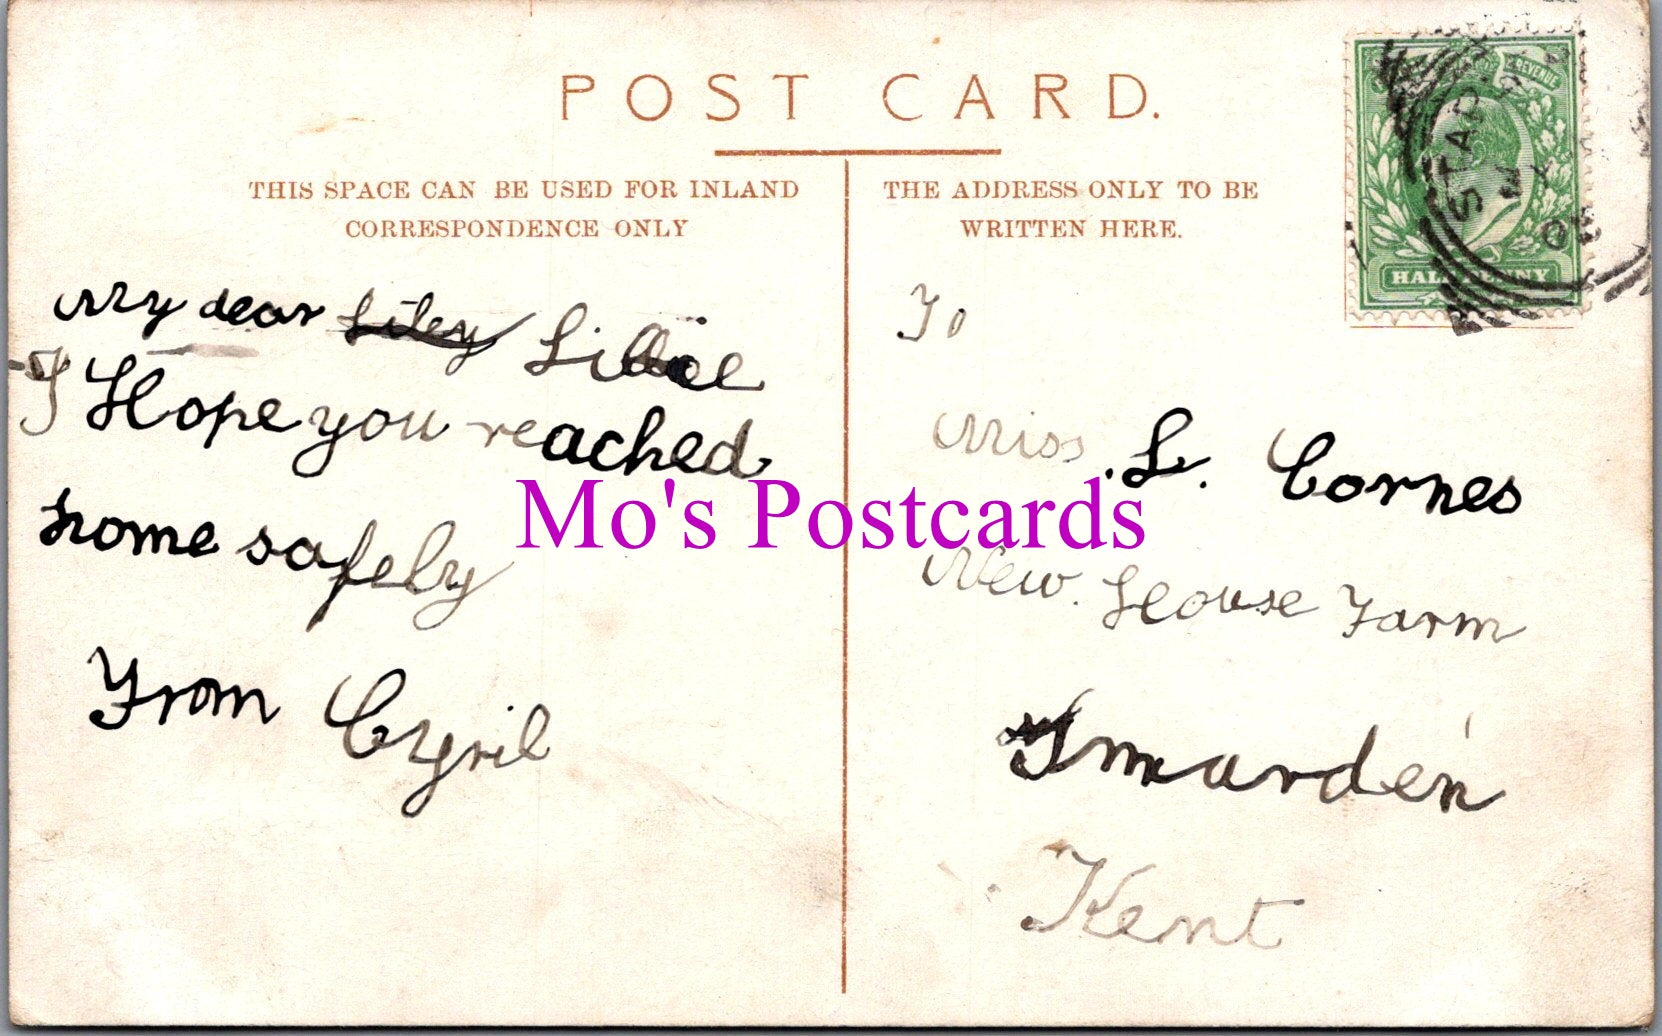 POST CARD.
THIS SPACE CAN BE USED FOR INLAND
CORRESPONDENCE ONLY
THE ADDRESS ONLY TO BE
WRITTEN HERE.
REVENUE
HALFPENNY
STAP
My dear Liley Lillie
I Hope you reached
home safely
From Cyril
To
Miss. L. Cornes
New. House Farm
Smarden
Kent
Mo's Postcards